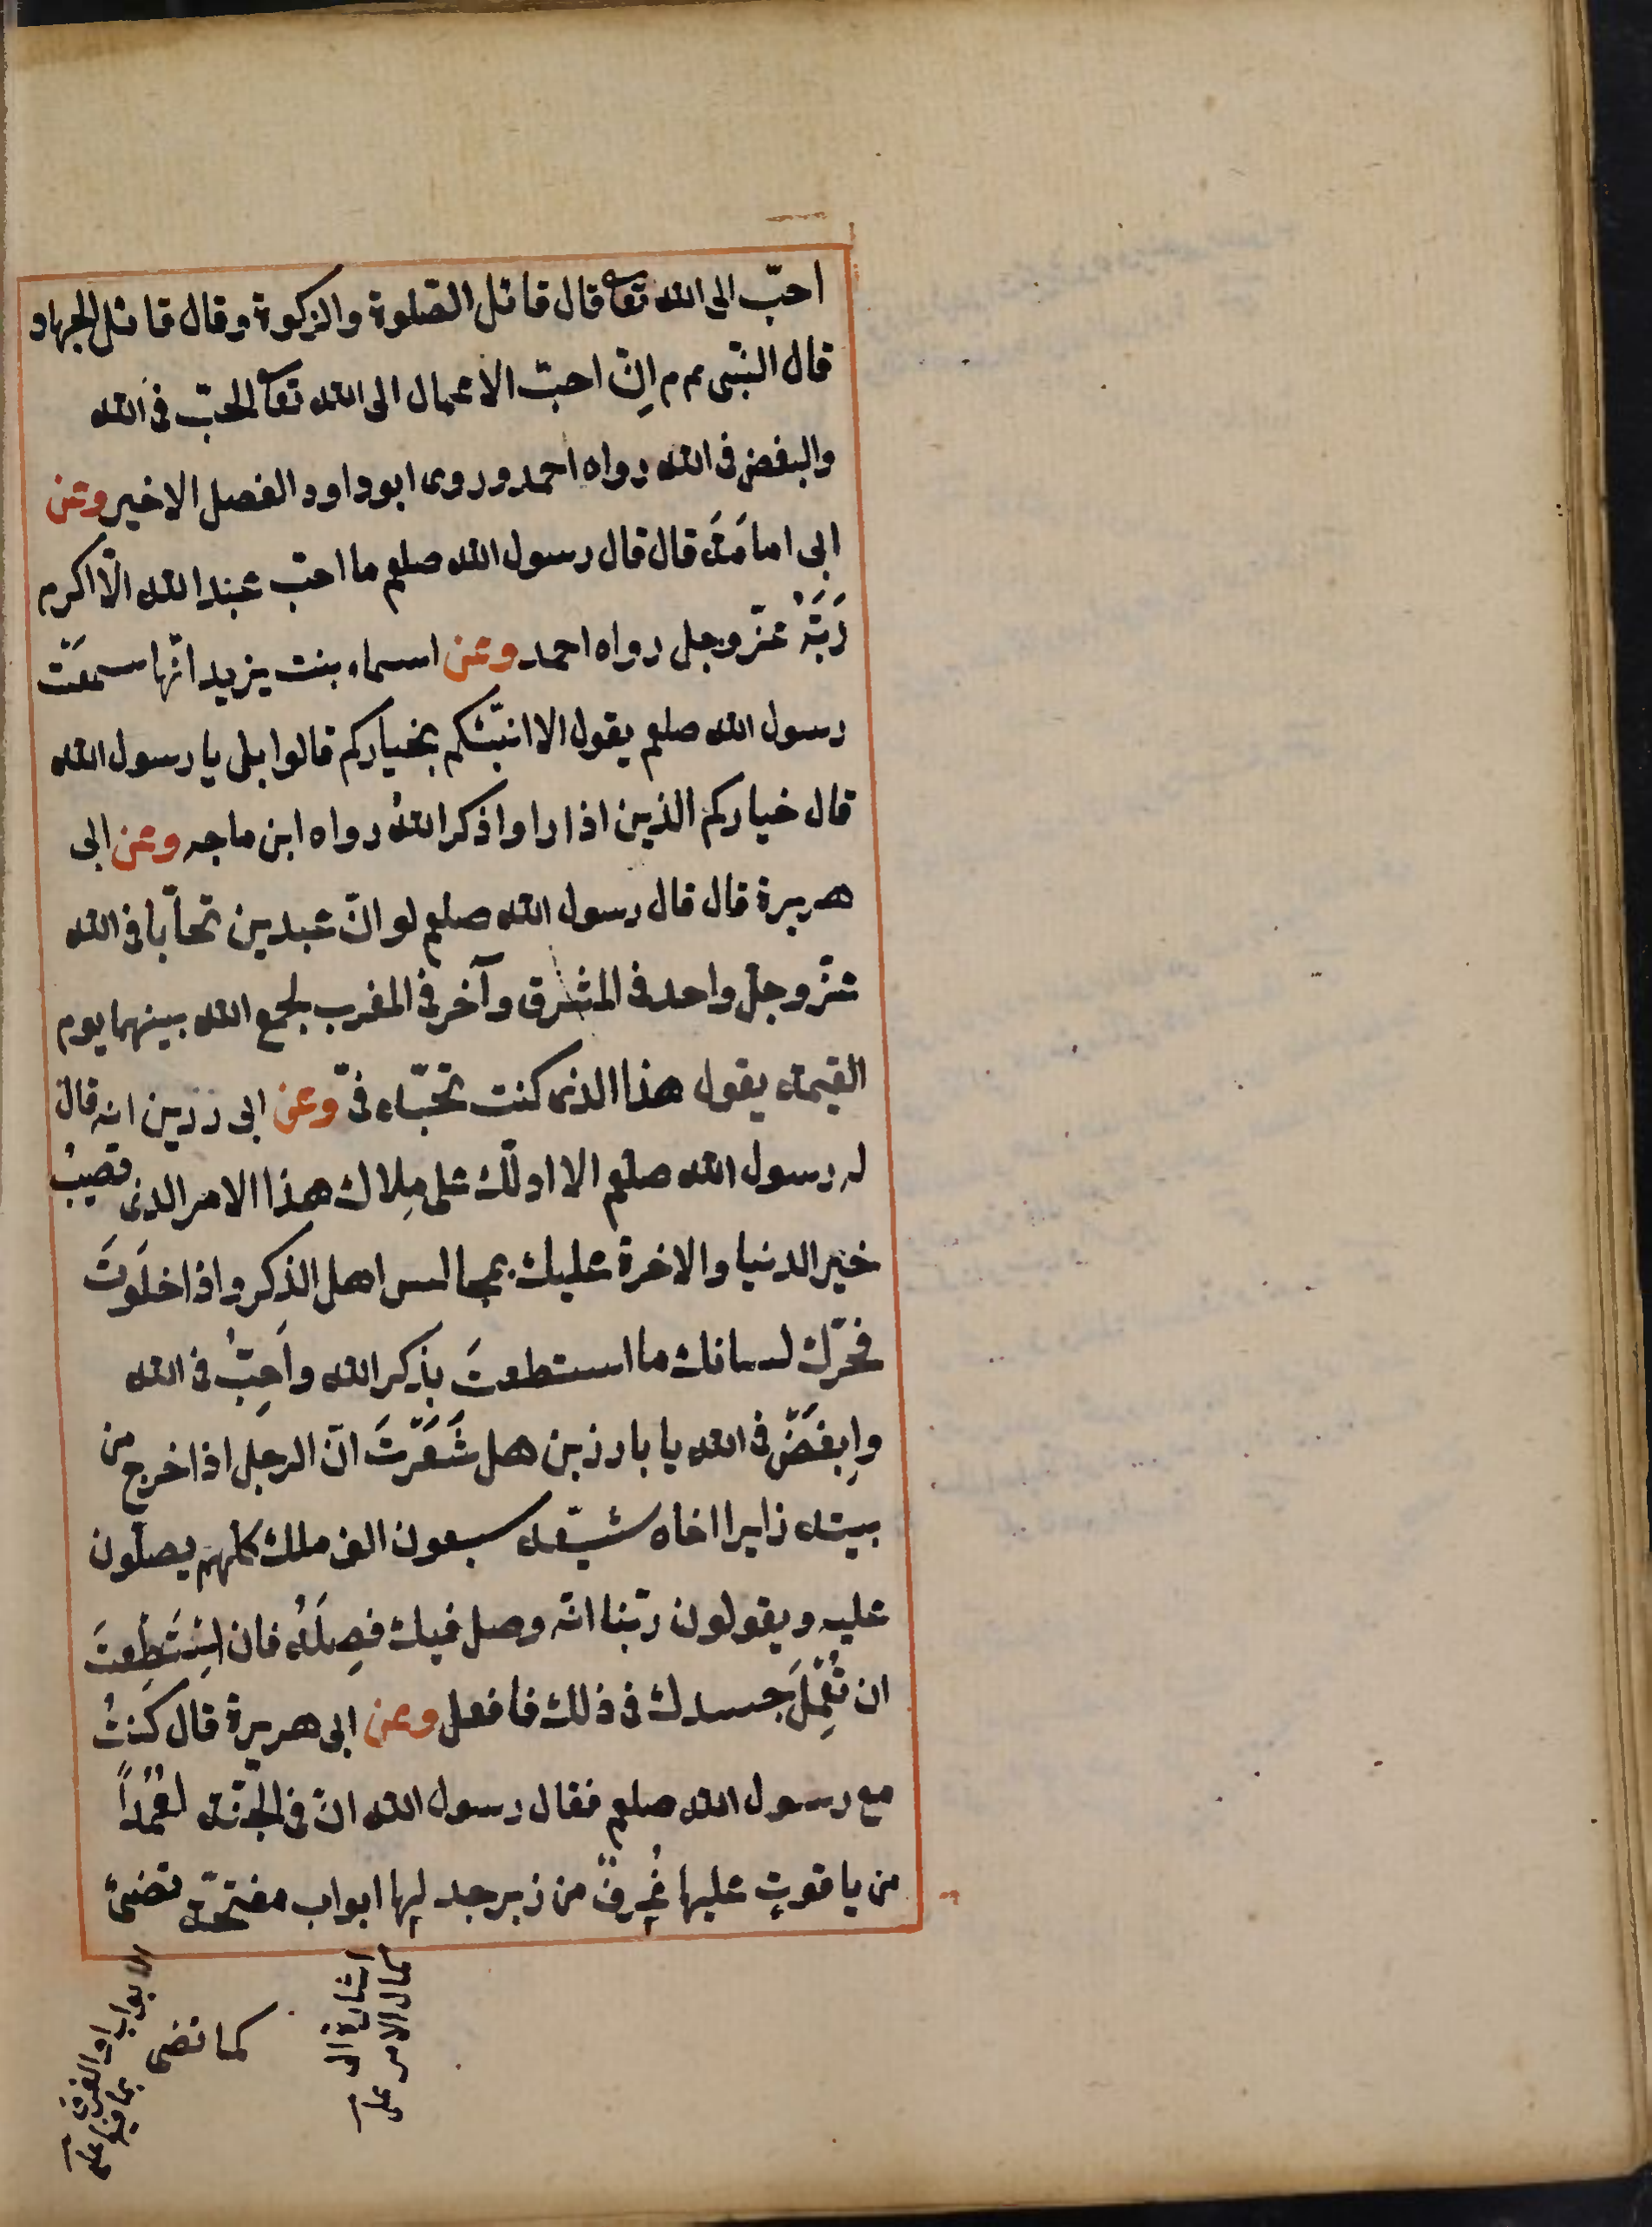 احبّ الى الله تعا قال قائل الصّلوة والزكوة وقال قائل الجهاد
قال النّبى عم م اِنّ احبّ الاعمال الى الله تعا الحبّ فى الله
والبغض فى الله رواه احمد وروى ابوداود الفصل الاخير وعن
ابى امامَة قال قال رسول الله صلعم ما احبّ عبد الله الّا اكرم
رَبَّهُ عزّوجل رواه احمد وعن اسماء بنت يزيد انّها سمعَتْ
رسول الله صلعم يقول الا انبّئكم بخياركم قالوا بلى يا رسول الله
قال خياركم الذين اذا راوا ذكر اللهُ رواه ابن ماجه وعن ابى
هريرة قال قال رسول الله صلعم لو انّ عبدين تحابّا فى الله
عزّوجلّ واحد فى المشرق وآخر فى المغرب لجمع الله بينهما يوم
القيمة يقول هذا الذى كنت تحبّه فىّ وعن ابى رزين انه قال
له رسول الله صلعم الا ادلّك على مِلاك هذا الامر الذى تصيبُ
خير الدنيا والاخرة عليك بمجالس اهل الذكر واذا خلَوتَ
فحرّك لسانك ما استطعتَ بذكر الله واَحِبّ فى الله
واِبغَضْ فى الله يا با رزين هل شَعَرْتَ انّ الرجل اذا خرج من
بيته زايرا اخاه شيّعه سبعون الف ملك كلّهم يصلّون
عليه ويقولون ربّنا انّه وصل فيك فصِلْهُ فان اسْتَطَعتَ
ان تُعْمِلَ جسدك فى ذلك فافعل وعن ابى هريرة قال كنتُ
مع رسول الله صلعم فقال رسول الله انّ فى الجنّة لعُمُداً
من ياقوتٍ عليها غُرفٌ من زبرجد لها ابواب مفتّحة تضئ
كما تضى
اشارة الى
كمال الامر على
الابواب او الغرف
بما فيها على